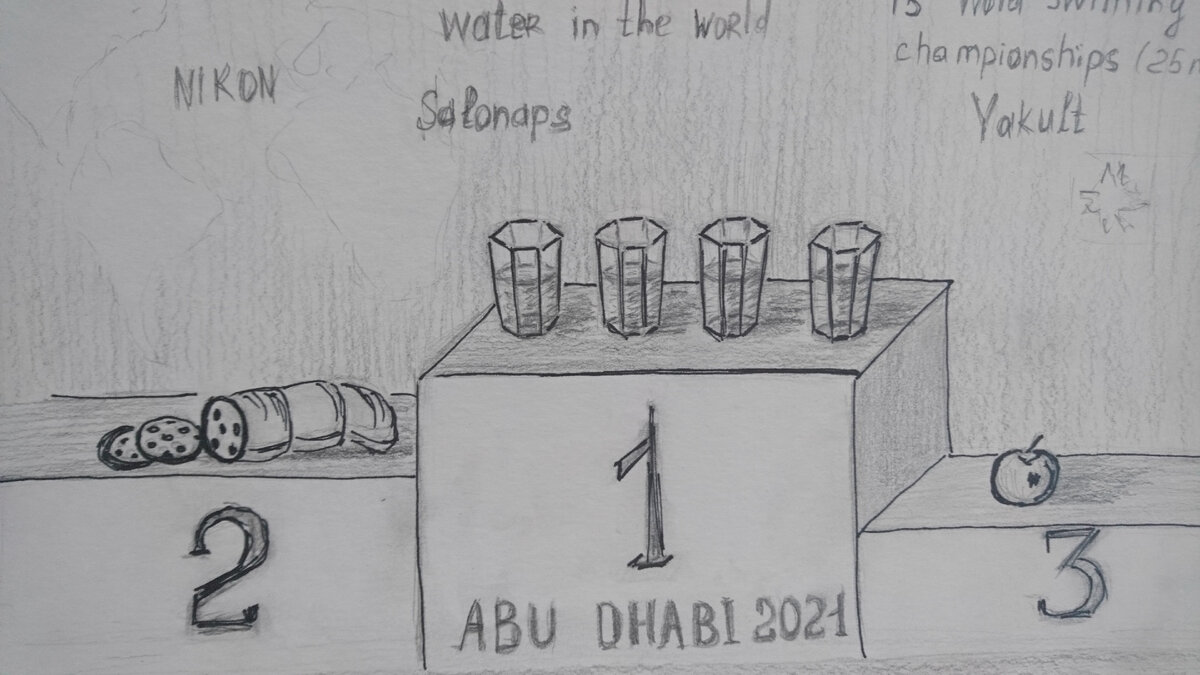 Water in the world
championships (25
NIKON
Salonaps
Yakult
1
2
3
ABU DHABI 2021